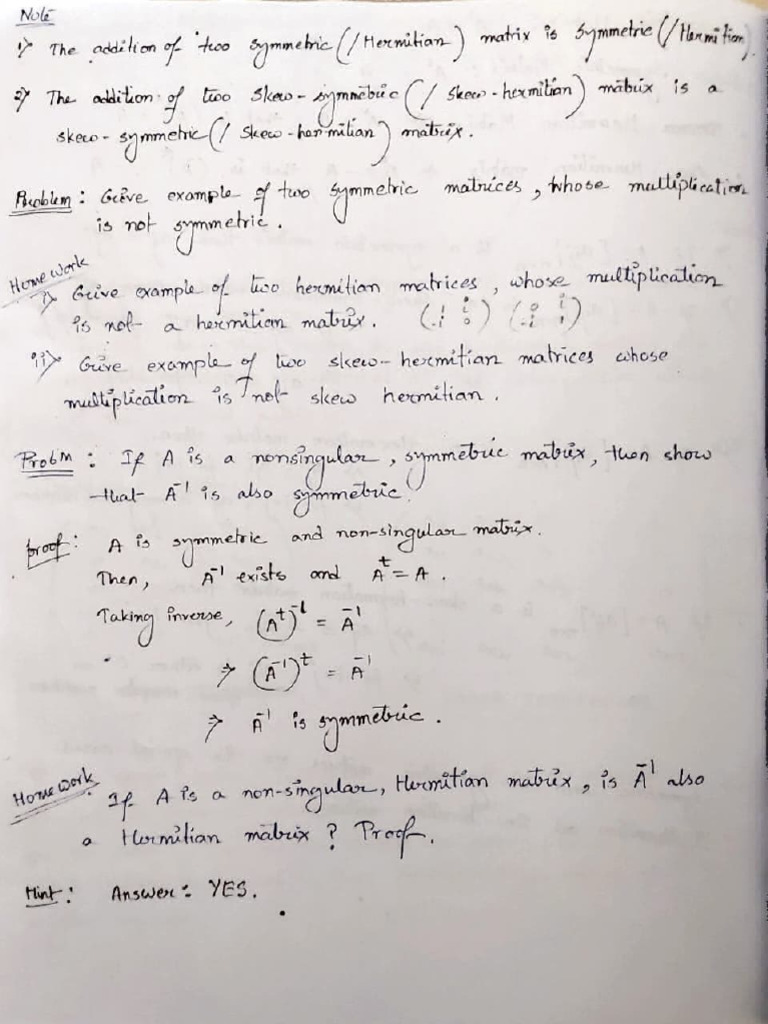 Note
1) The addition of two symmetric (/Hermitian) matrix is symmetric (/Hermitian).
2) The addition of two skew-symmetric (/ skew-hermitian) matrix is a
skew-symmetric (/ skew-hermitian) matrix.
Problem : Give example of two symmetric matrices, whose multiplication
is not symmetric.
Home work
i) Give example of two hermitian matrices, whose multiplication
is not a hermitian matrix. (1 i -i 0) (0 i -i 1)
ii) Give example of two skew-hermitian matrices whose
multiplication is not skew hermitian.
Probm : If A is a nonsingular, symmetric matrix, then show
that A⁻¹ is also symmetric.
proof : A is symmetric and non-singular matrix.
Then, A⁻¹ exists and Aᵗ = A.
Taking inverse, (Aᵗ)⁻¹ = A⁻¹
⇒ (A⁻¹)ᵗ = A⁻¹
⇒ A⁻¹ is symmetric.
Home work. If A is a non-singular, Hermitian matrix, is A⁻¹ also
a Hermitian matrix ? Proof.
Hint : Answer : YES.